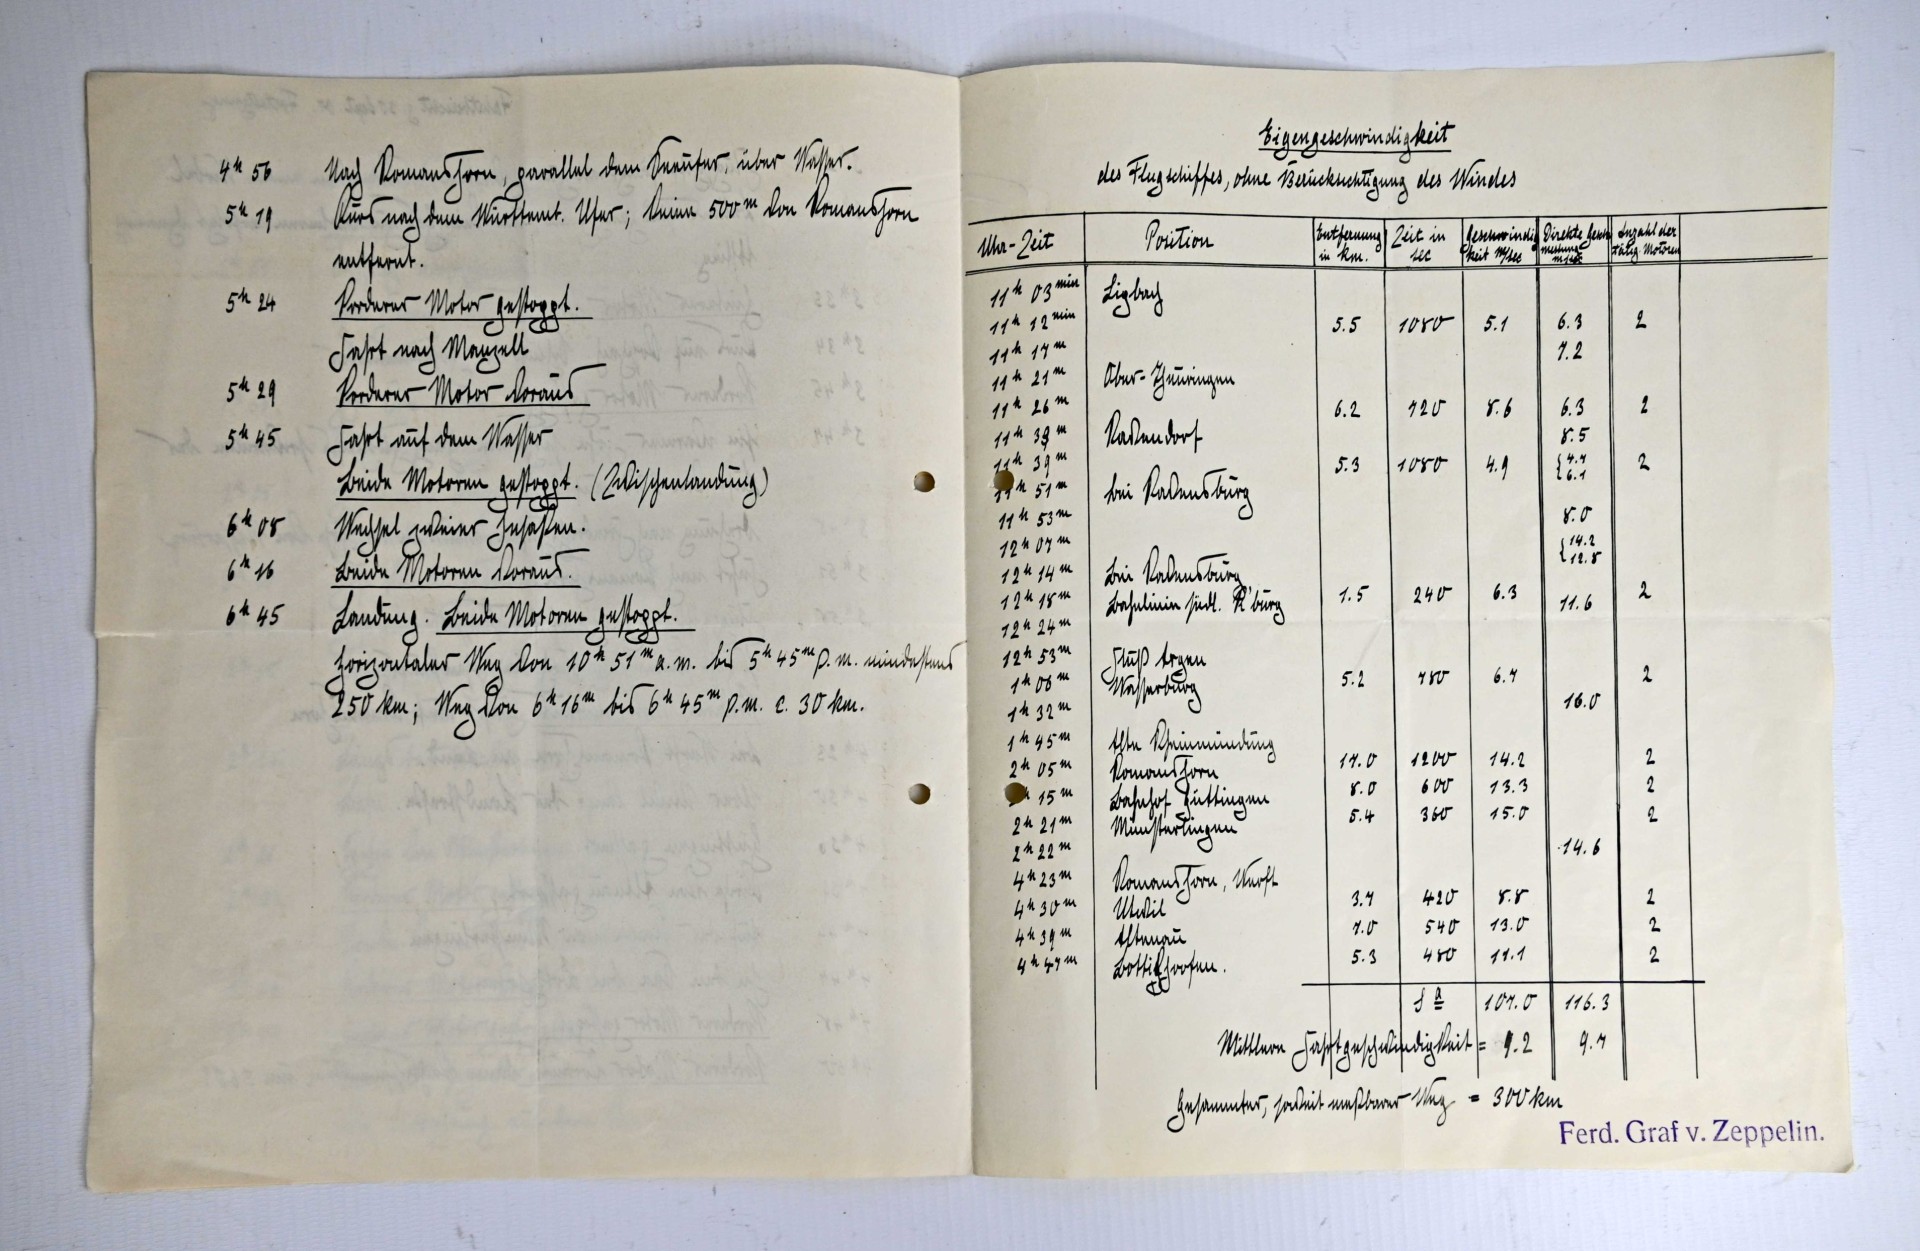 4ʰ 56 Nach Romanshorn, parallel dem Seeufer, über Wasser.
5ʰ 19 Kurs nach dem Württemb. Ufer; keine 500ᵐ von Romanshorn
entfernt.
5ʰ 24 Vorderer Motor gestoppt.
Fahrt nach Manzell
5ʰ 29 Vorderer Motor voraus
5ʰ 45 Fahrt auf dem Wasser
Beide Motoren gestoppt. (Zwischenlandung)
6ʰ 08 Wechsel zweier Insassen.
6ʰ 16 Beide Motoren voraus.
6ʰ 45 Landung. Beide Motoren gestoppt.
Horizontaler Weg von 10ʰ 51ᵐ a.m. bis 5ʰ 45ᵐ p.m. mindestens
250 km; Weg von 6ʰ 16ᵐ bis 6ʰ 45ᵐ p.m. c. 30 km.
Eigengeschwindigkeit
des Flugschiffes, ohne Berücksichtigung des Windes
Uhr-Zeit Position Entfernung in km. Zeit in sec Geschwindigkeit m/sec Direkte messung m/sec Anzahl der tätig. Motoren
11ʰ 03ᵐⁱⁿ
11ʰ 12ᵐⁱⁿ 5.5 1080 5.1 6.3 2
11ʰ 17ᵐ 7.2
11ʰ 21ᵐ Ober-Theuringen
11ʰ 26ᵐ 6.2 720 8.6 6.3 2
11ʰ 33ᵐ 8.5
11ʰ 39ᵐ 5.3 1080 4.9 4.7 6.1 2
11ʰ 51ᵐ bei Ravensburg
11ʰ 53ᵐ 8.0
12ʰ 07ᵐ 14.2 12.8
12ʰ 14ᵐ bei Ravensburg
12ʰ 18ᵐ Bahnlinie südl. R'burg 1.5 240 6.3 11.6 2
12ʰ 24ᵐ
12ʰ 53ᵐ Fluß Argen
1ʰ 06ᵐ Wasserburg 5.2 780 6.7 2
1ʰ 32ᵐ 16.0
1ʰ 45ᵐ Alte Rheinmündung
2ʰ 05ᵐ Romanshorn 17.0 1200 14.2 2
15ᵐ Bahnhof Güttingen 8.0 600 13.3 2
2ʰ 21ᵐ Münsterlingen 5.4 360 15.0 2
2ʰ 22ᵐ 14.6
4ʰ 23ᵐ Romanshorn, Werft
4ʰ 30ᵐ Utwil 3.7 420 8.8 2
4ʰ 39ᵐ Altenau 7.0 540 13.0 2
4ʰ 47ᵐ Bottighofen. 5.3 480 11.1 2
Sa 107.0 116.3
Mittlere Fahrtgeschwindigkeit = 9.2 9.7
Gesammter, soweit meßbarer Weg = 300 km
Ferd. Graf v. Zeppelin.